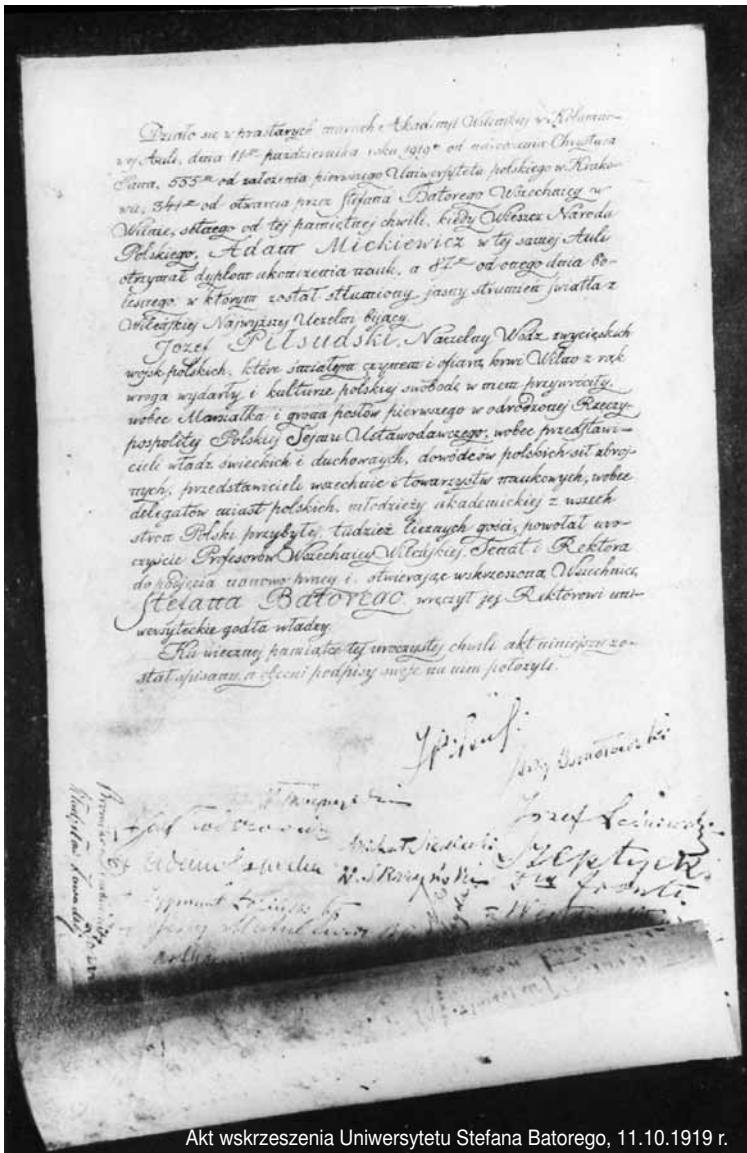 Działo się w prastarych murach Akademji Wileńskiej w Kolumno-
wej Auli, dnia 11go października roku 1919go od narodzenia Chrystusa
Pana, 535go od założenia pierwszego Uniwersytetu polskiego w Krako-
wie, 341go od otwarcia przez Stefana Batorego Wszechnicy w
Wilnie, setnego od tej pamiętnej chwili, kiedy Wieszcz Narodu
Polskiego, Adam Mickiewicz w tej samej Auli
otrzymał dyplom ukończenia nauk, a 87go od onego dnia bo-
lesnego, w którym został stłumiony jasny strumień światła z
Wileńskiej Najwyższej Uczelni bijący.
Józef Piłsudski, Naczelny Wódz zwycięskich
wojsk polskich, które śmiałym czynem i ofiarą krwi Wilno z rąk
wroga wydarły i kulturze polskiej swobodę w niem przywróciły,
wobec Marszałka i grona posłów pierwszego w odrodzonej Rzeczy-
pospolitej Polskiej Sejmu Ustawodawczego, wobec przedstawi-
cieli władz świeckich i duchownych, dowódców polskich sił zbroj-
nych, przedstawicieli wszechnic i towarzystw naukowych, wobec
delegatów miast polskich, młodzieży akademickiej z wszech
stron Polski przybyłej, tudzież licznych gości, powołał uro-
czyście Profesorów Wszechnicy Wileńskiej, Senat i Rektora
do podjęcia nanowo pracy i, otwierając wskrzeszoną Wszechnicę
Stefana Batorego, wręczył jej Rektorowi uni-
wersyteckie godła władzy.
Ku wiecznej pamiątce tej uroczystej chwili akt niniejszy zo-
stał spisany, a obecni podpisy swoje na nim położyli.
JPiłsudski
Jerzy Osmołowski
Józef Leśniewski
Szeptycki
Akt wskrzeszenia Uniwersytetu Stefana Batorego, 11.10.1919 r.